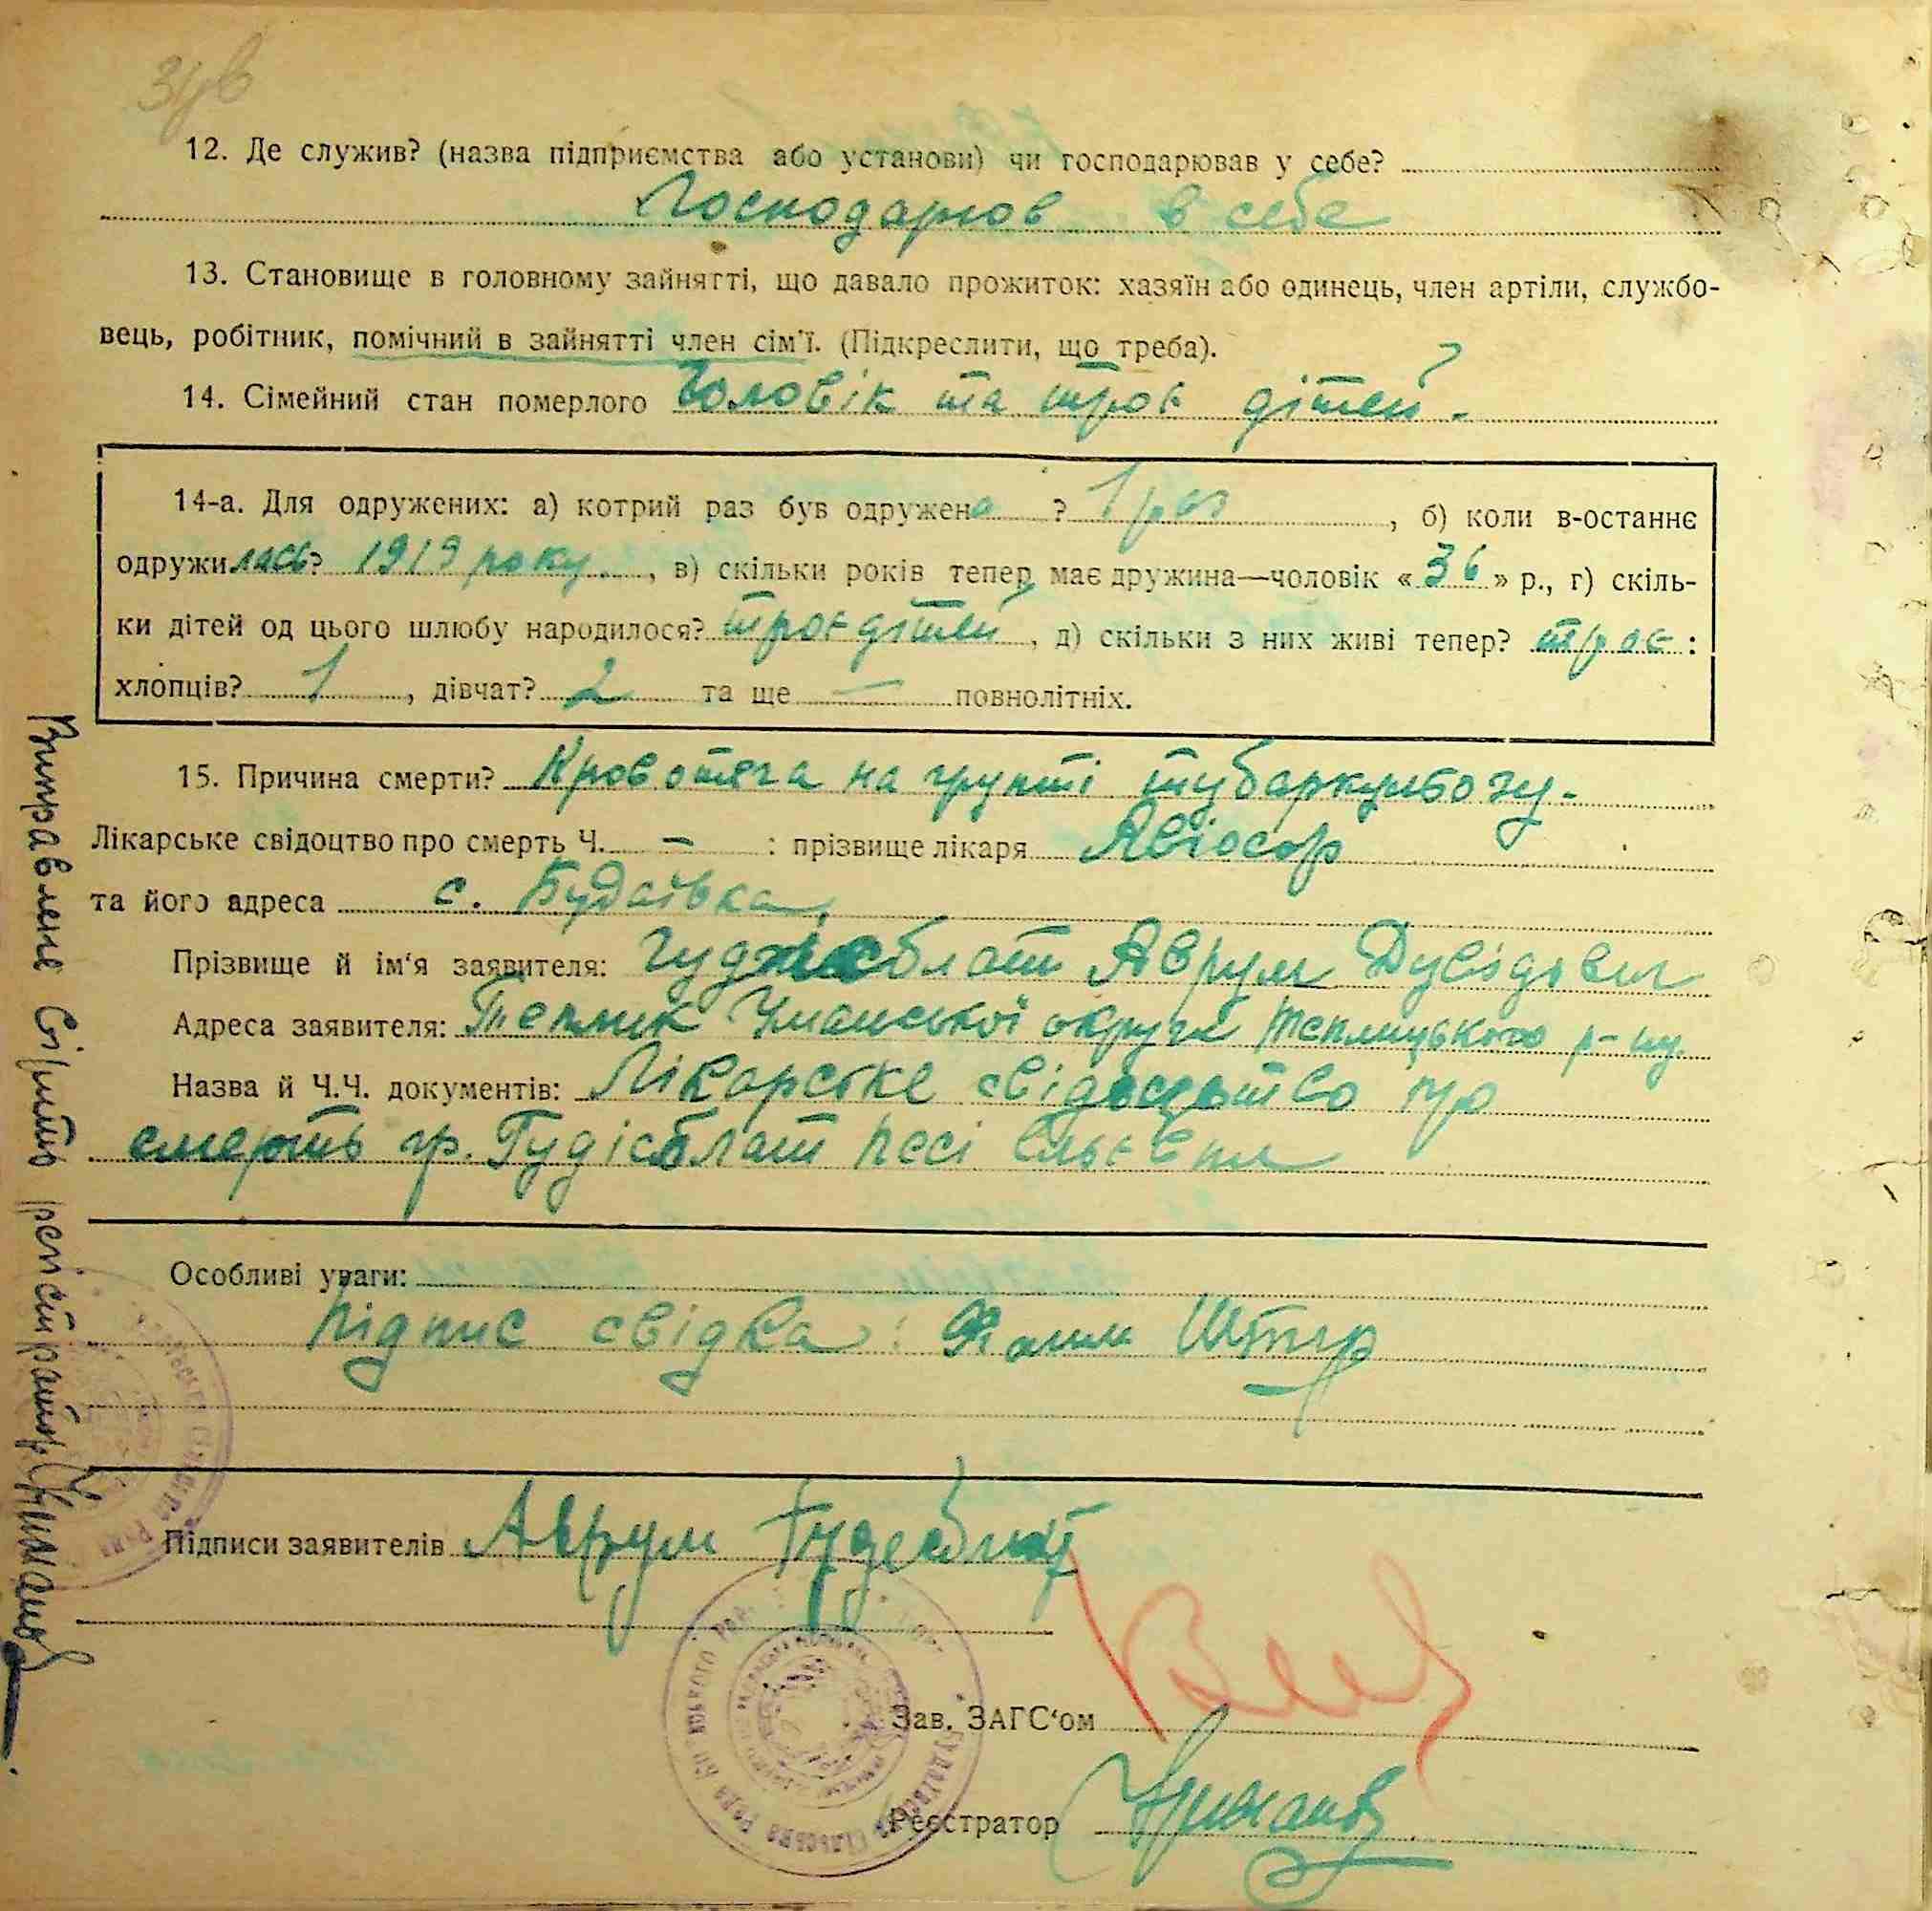 12. Де служив? (назва підприємства або установи) чи господарював у себе?
Господарюв в себе
13. Становище в головному зайнятті, що давало прожиток: хазяїн або одинець, член артіли, службо-
вець, робітник, помічний в зайнятті член сім'ї. (Підкреслити, що треба).
14. Сімейний стан померлого Чоловік та троє дітей.
14-а. Для одружених: а) котрий раз був одружена ? 1 раз , б) коли в-останнє
одружилась? 1919 року , в) скільки років тепер має дружина—чоловік «36» р., г) скіль-
ки дітей од цього шлюбу народилося? троє дітей , д) скільки з них живі тепер? троє :
хлопців? 1 , дівчат? 2 та ще — повнолітніх.
15. Причина смерти? Кровотяга на грунті тубаркульозу.
Лікарське свідоцтво про смерть Ч. — : прізвище лікаря
та його адреса с. Будаївка,
Прізвище й ім'я заявителя: Аврум Дувідович
Адреса заявителя: Теплик Уманської округи Теплицького р-ну.
Назва й Ч.Ч. документів: Лікарське свідоцтво про
смерть гр. Гудісблат Песі
Особливі уваги:
Підпис свідка:
Підписи заявителів Аврум
Зав. ЗАГС'ом
Реєстратор
Виправлене вірить реєстратор